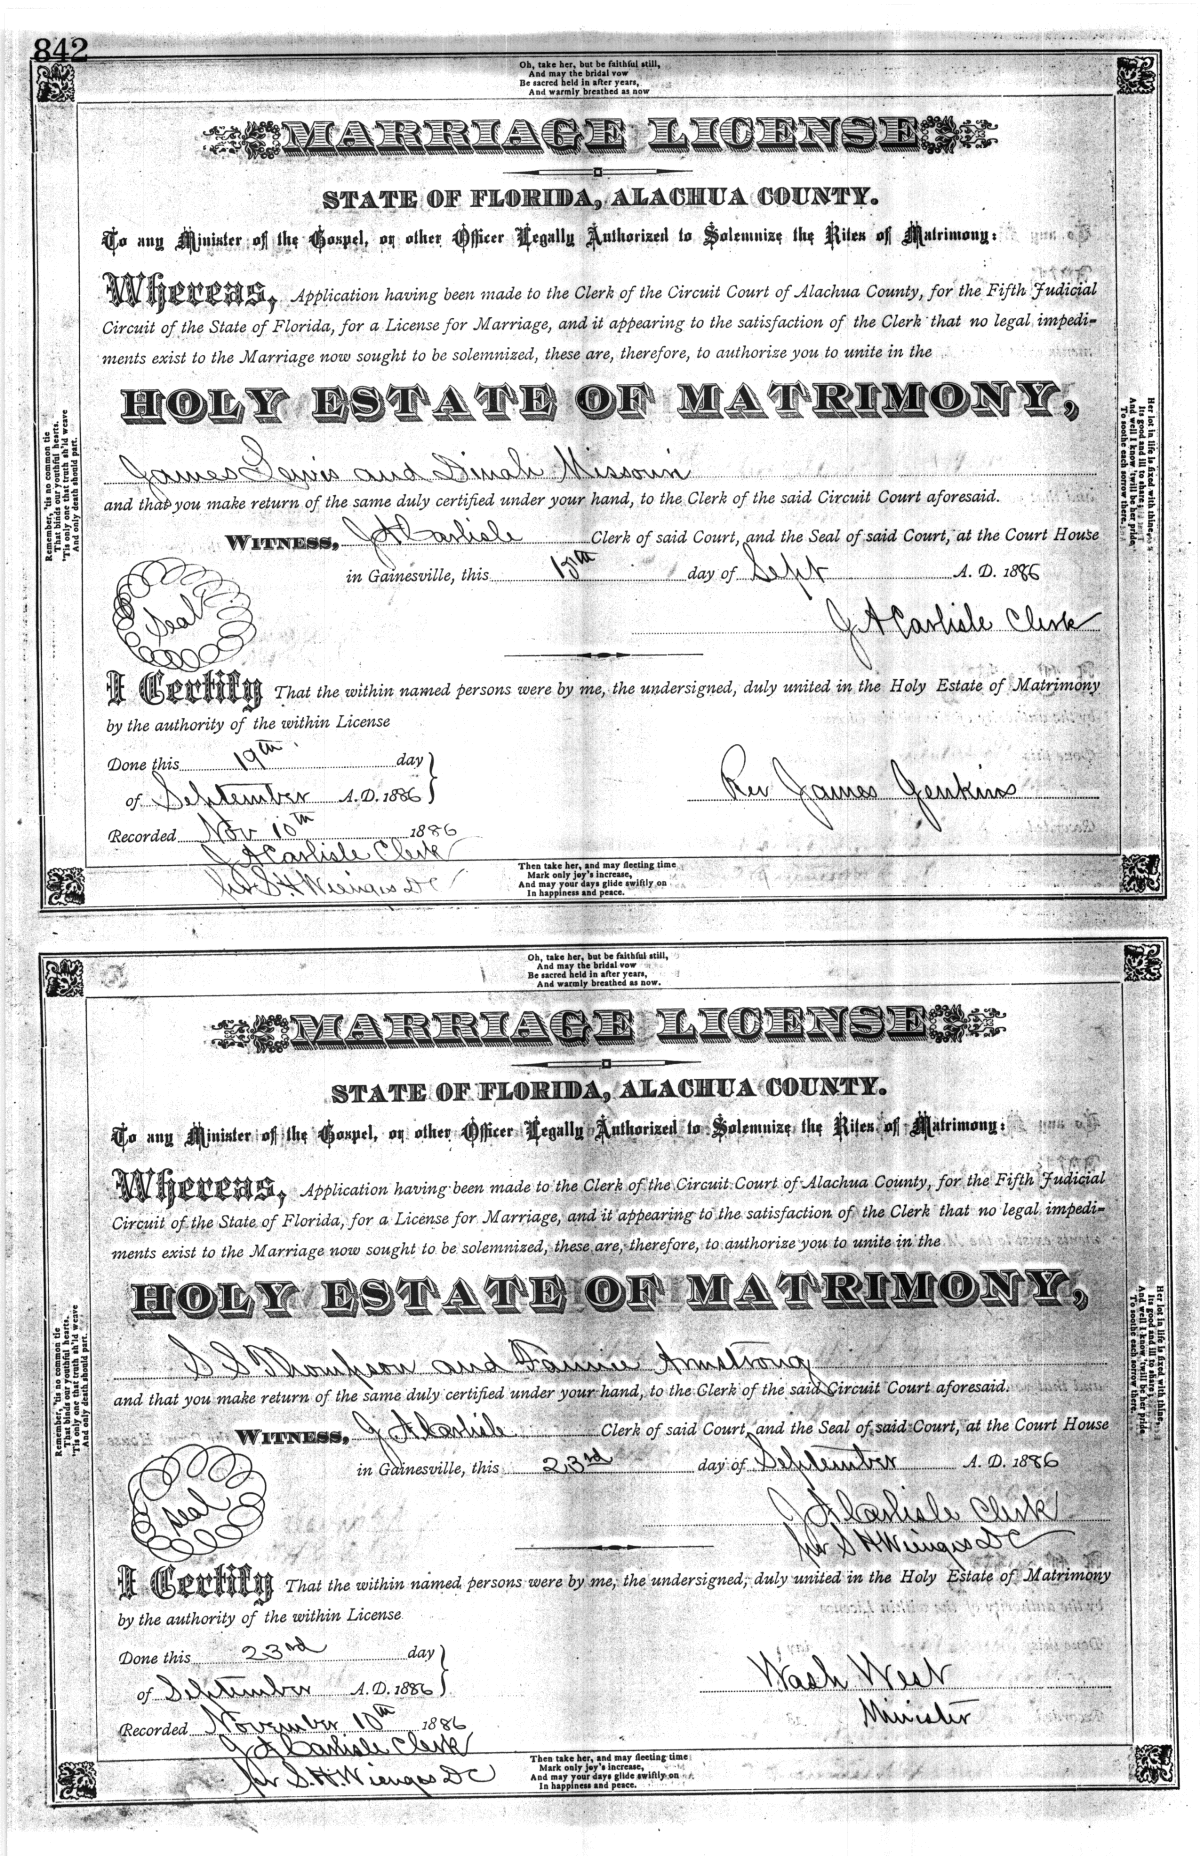 842
Oh, take her, but be faithful still,
And may the bridal vow
Be sacred held in after years,
And warmly breathed as now
MARRIAGE LICENSE
STATE OF FLORIDA, ALACHUA COUNTY.
To any Minister of the Gospel, or other Officer Legally Authorized to Solemnize the Rites of Matrimony:
Whereas, Application having been made to the Clerk of the Circuit Court of Alachua County, for the Fifth Judicial
Circuit of the State of Florida, for a License for Marriage, and it appearing to the satisfaction of the Clerk that no legal impedi-
ments exist to the Marriage now sought to be solemnized, these are, therefore, to authorize you to unite in the
HOLY ESTATE OF MATRIMONY,
James Lewis and Dinah Missouri
and that you make return of the same duly certified under your hand, to the Clerk of the said Circuit Court aforesaid.
WITNESS, J A Carlisle Clerk of said Court, and the Seal of said Court, at the Court House
in Gainesville, this 15th day of Sept A. D. 1886
seal
J A Carlisle Clerk
I Certify That the within named persons were by me, the undersigned, duly united in the Holy Estate of Matrimony
by the authority of the within License
Done this 19th day
of September A. D. 1886
Rev James Jenkins
Recorded Nov 10th 1886
J A Carlisle Clerk
per S. H. Wienges DC
Remember, 'tis no common tie
That binds our youthful hearts.
'Tis only one that truth sh'ld weave
And only death should part.
Her lot in life is fixed with thine,
Its good and ill to share;
And well I know 'twill be her pride
To soothe each sorrow there.
Then take her, and may fleeting time
Mark only joy's increase,
And may your days glide swiftly on
In happiness and peace.
Oh, take her, but be faithful still,
And may the bridal vow
Be sacred held in after years,
And warmly breathed as now.
MARRIAGE LICENSE
STATE OF FLORIDA, ALACHUA COUNTY.
To any Minister of the Gospel, or other Officer Legally Authorized to Solemnize the Rites of Matrimony:
Whereas, Application having been made to the Clerk of the Circuit Court of Alachua County, for the Fifth Judicial
Circuit of the State of Florida, for a License for Marriage, and it appearing to the satisfaction of the Clerk that no legal impedi-
ments exist to the Marriage now sought to be solemnized, these are, therefore, to authorize you to unite in the
HOLY ESTATE OF MATRIMONY,
S S Thompson and Fannie Armstrong
and that you make return of the same duly certified under your hand, to the Clerk of the said Circuit Court aforesaid.
WITNESS, J A Carlisle Clerk of said Court, and the Seal of said Court, at the Court House
in Gainesville, this 23rd day of September A. D. 1886
seal
J A Carlisle Clerk
per S H Wienges DC
I Certify That the within named persons were by me, the undersigned, duly united in the Holy Estate of Matrimony
by the authority of the within License
Done this 23rd day
of September A. D. 1886
Wash West
Minister
Recorded November 10th 1886
J A Carlisle Clerk
per S. H. Wienges DC
Remember, 'tis no common tie
That binds our youthful hearts.
'Tis only one that truth sh'ld weave
And only death should part.
Her lot in life is fixed with thine,
Its good and ill to share;
And well I know 'twill be her pride
To soothe each sorrow there.
Then take her, and may fleeting time
Mark only joy's increase,
And may your days glide swiftly on
In happiness and peace.